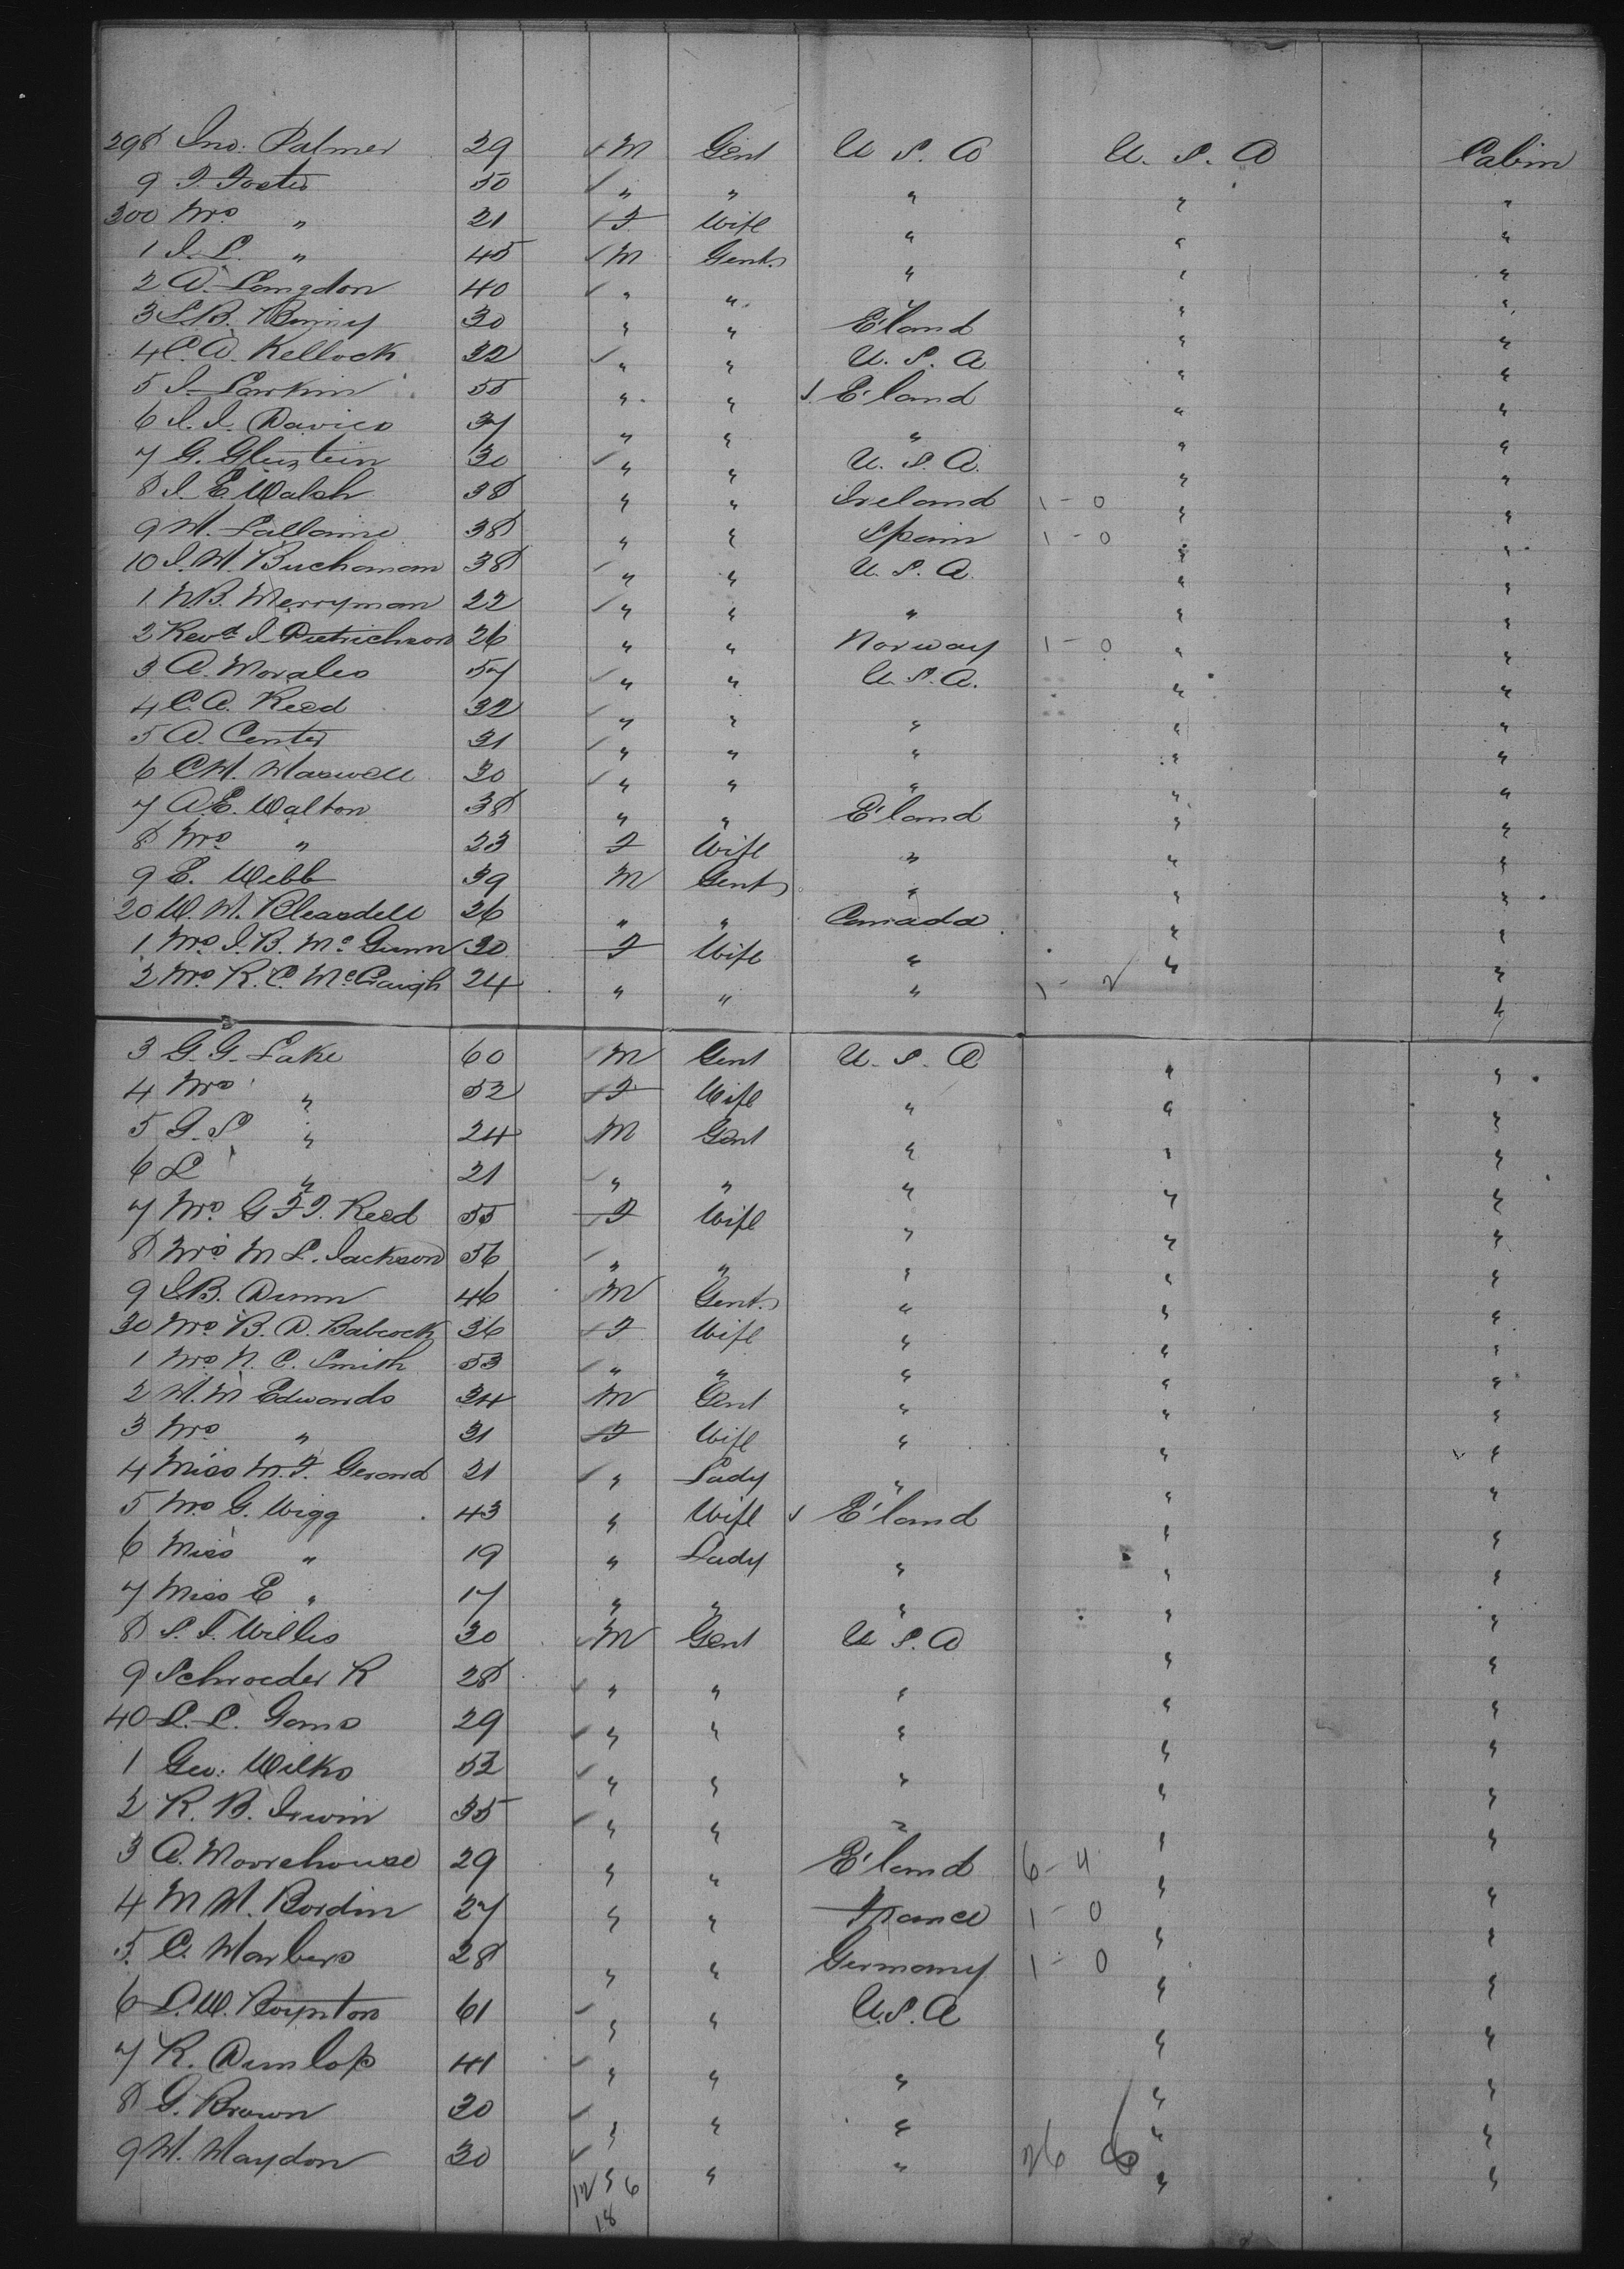 298 Jno. Palmer 29 M Gent U S. A U. S. A Cabin
9 J. Foster 50 " " " " "
300 Mrs " 21 F Wife " " "
1 J. L. " 45 M Gent. " " "
2 A. Langdon 40 " " " " "
3 30 " " E'land " "
4 C. A. Kellock 32 " " U. S. A " "
5 J. Larkin 55 " " E'land " "
6 J. J. Davies 37 " " " " "
7 G. 30 " " U. S. A. " "
8 J. E Walsh 38 " " Ireland 1 - 0 " "
9 M. 38 " " Spain 1 - 0 " "
10 J. W. Buchanan 38 " " U. S. A. " "
1 N B. Merryman 22 " " " " "
2 Revd. J. Dietrichson 26 " " Norway 1 - 0 " "
3 A. Morales 57 " " U. S. A. " "
4 C. A. Reed 32 " " " " "
5 A. Center 31 " " " " "
6 C W. Maxwell 30 " " " " "
7 A. E. Walton 38 " " E'land " "
8 Mrs " 23 F Wife " " "
9 E. Webb 39 M Gent " " "
20 W. W. Bleasdell 26 " " Canada " "
1 Mrs J. B. Mc Gunn 30 F Wife " " "
2 Mrs R. C. McCraigh 24 " " " 1 - 2 " "
3 G. G. Lake 60 M Gent U. S. A " "
4 Mrs " 52 F Wife " " "
5 G. S " 24 M Gent " " "
6 L " 21 " " " " "
7 Mrs G F J. Reed 55 F Wife " " "
8 Mrs M L. Jackson 56 " " " " "
9 J. B. Dunn 46 M Gent. " " "
30 Mrs B. A. Babcock 36 F Wife " " "
1 Mrs N. C. Smith 53 " " " " "
2 W. M Edwards 34 M Gent " " "
3 Mrs " 31 F Wife " " "
4 Miss M. F. Gerard 21 " Lady " " "
5 Mrs G. Wigg 43 " Wife E'land " "
6 Miss " 19 " Lady " " "
7 Miss E " 17 " " " " "
8 S. F. Willis 30 M Gent U S. A " "
9 Schroeder R 28 " " " " "
40 L. L. Gans 29 " " " " "
1 Geo. Wilks 52 " " " " "
2 R. B. Irwin 35 " " " " "
3 A. Moorehouse 29 " " E'land 6 - 4 " "
4 M W. Bordin 27 " " France 1 - 0 " "
5. C. Warburs 28 " " Germany 1 - 0 " "
6 L. W. Boynton 61 " " U. S. A " "
7 R. Dunlop 41 " " " " "
8 G. Brown 30 " " " " "
9 W. Waydon 30 " " " 26 6 " "
12 6
18